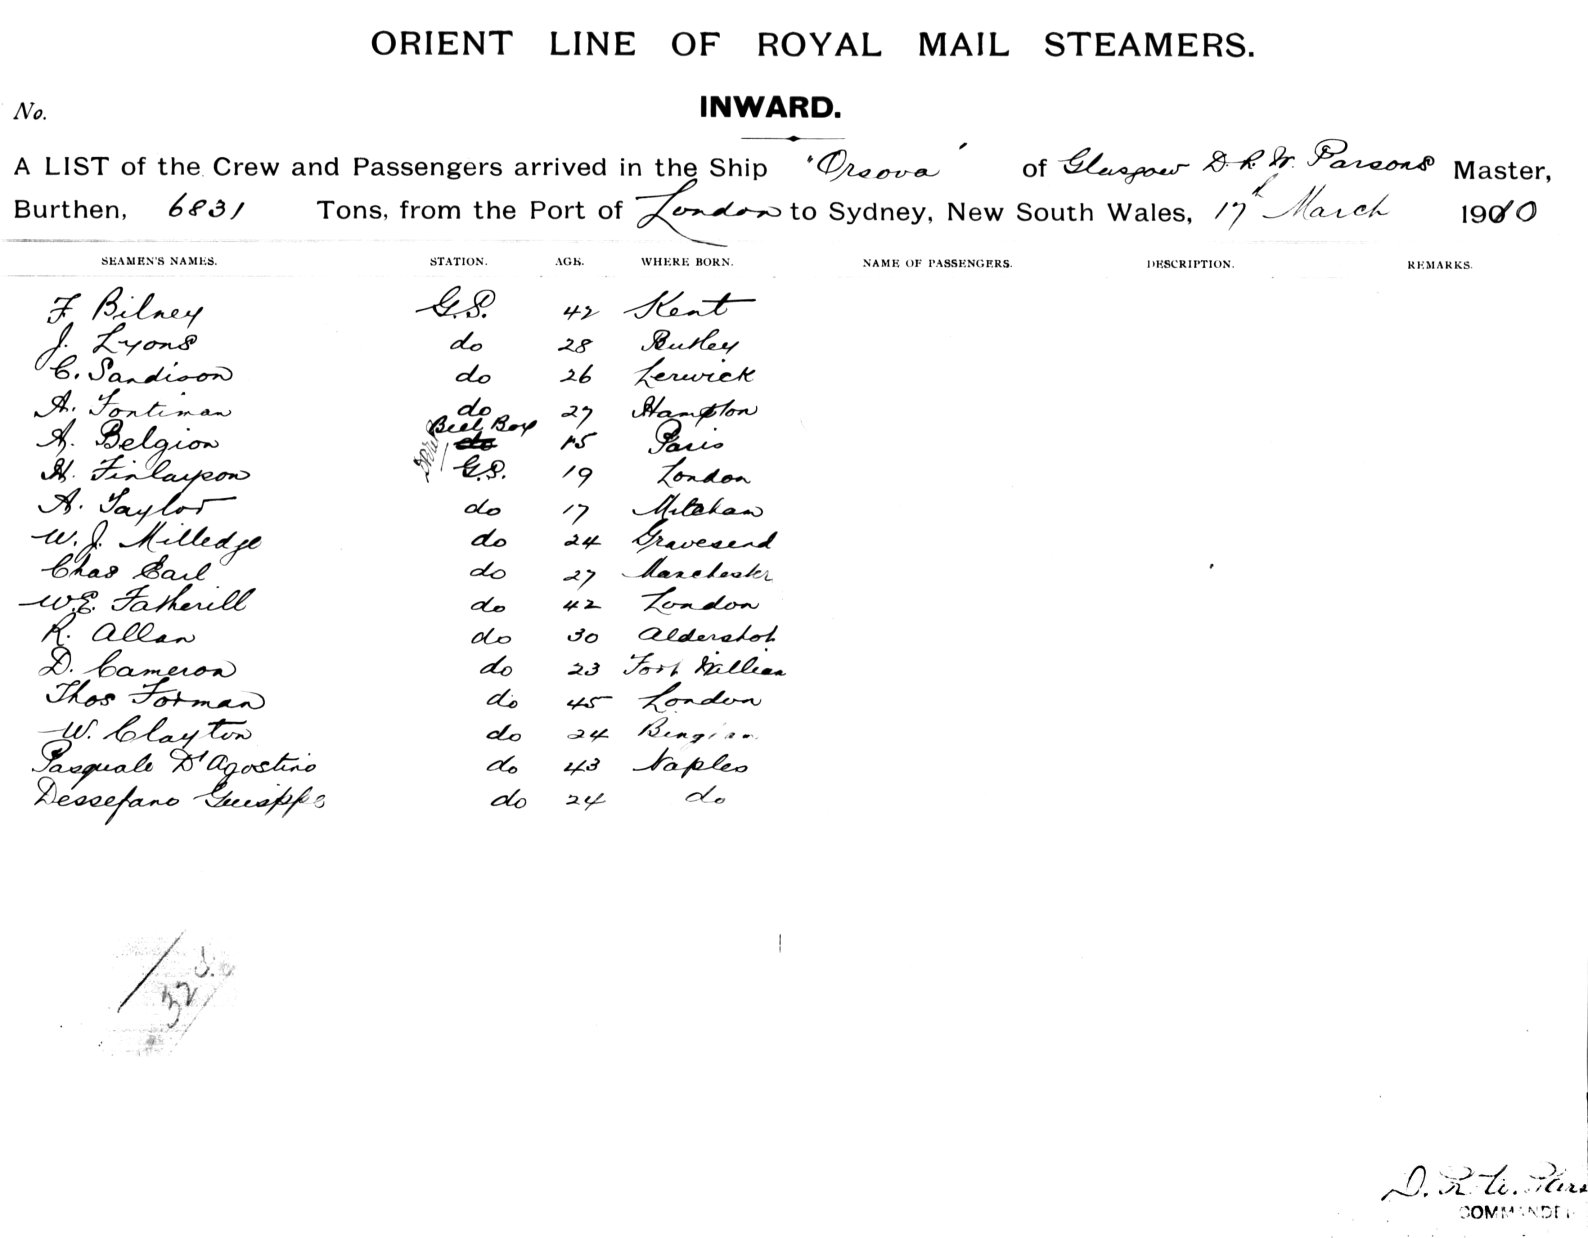 ORIENT LINE OF ROYAL MAIL STEAMERS.
No. INWARD.
A LIST of the Crew and Passengers arrived in the Ship "Orsova" of Glasgow D. R. W. Parsons Master,
Burthen, 6831 Tons, from the Port of London to Sydney, New South Wales, 17th March 1910
SEAMEN'S NAMES. STATION. AGE. WHERE BORN. NAME OF PASSENGERS. DESCRIPTION. REMARKS.
F Bilney G.S. 42 Kent
J. Lyons do 28 Butley
C. Sandison do 26 Lerwick
A. Fontiman do 27 Hampton
A. Belgion Bell Boy do 15 Paris
H. Finlayson G.S. 19 London
A. Taylor do 17 Mitcham
W. J. Milledge do 24 Gravesend
Chas Earl do 27 Manchester
W.E. Fatherill do 42 London
R. Allan do 30 Aldershot
D. Cameron do 23 Fort William
Thos Forman do 45 London
W. Clayton do 24
Pasquale D'Agostino do 43 Naples
Dessefano Guisppe do 24 do
32
D. R. W. Pars
COMMANDER